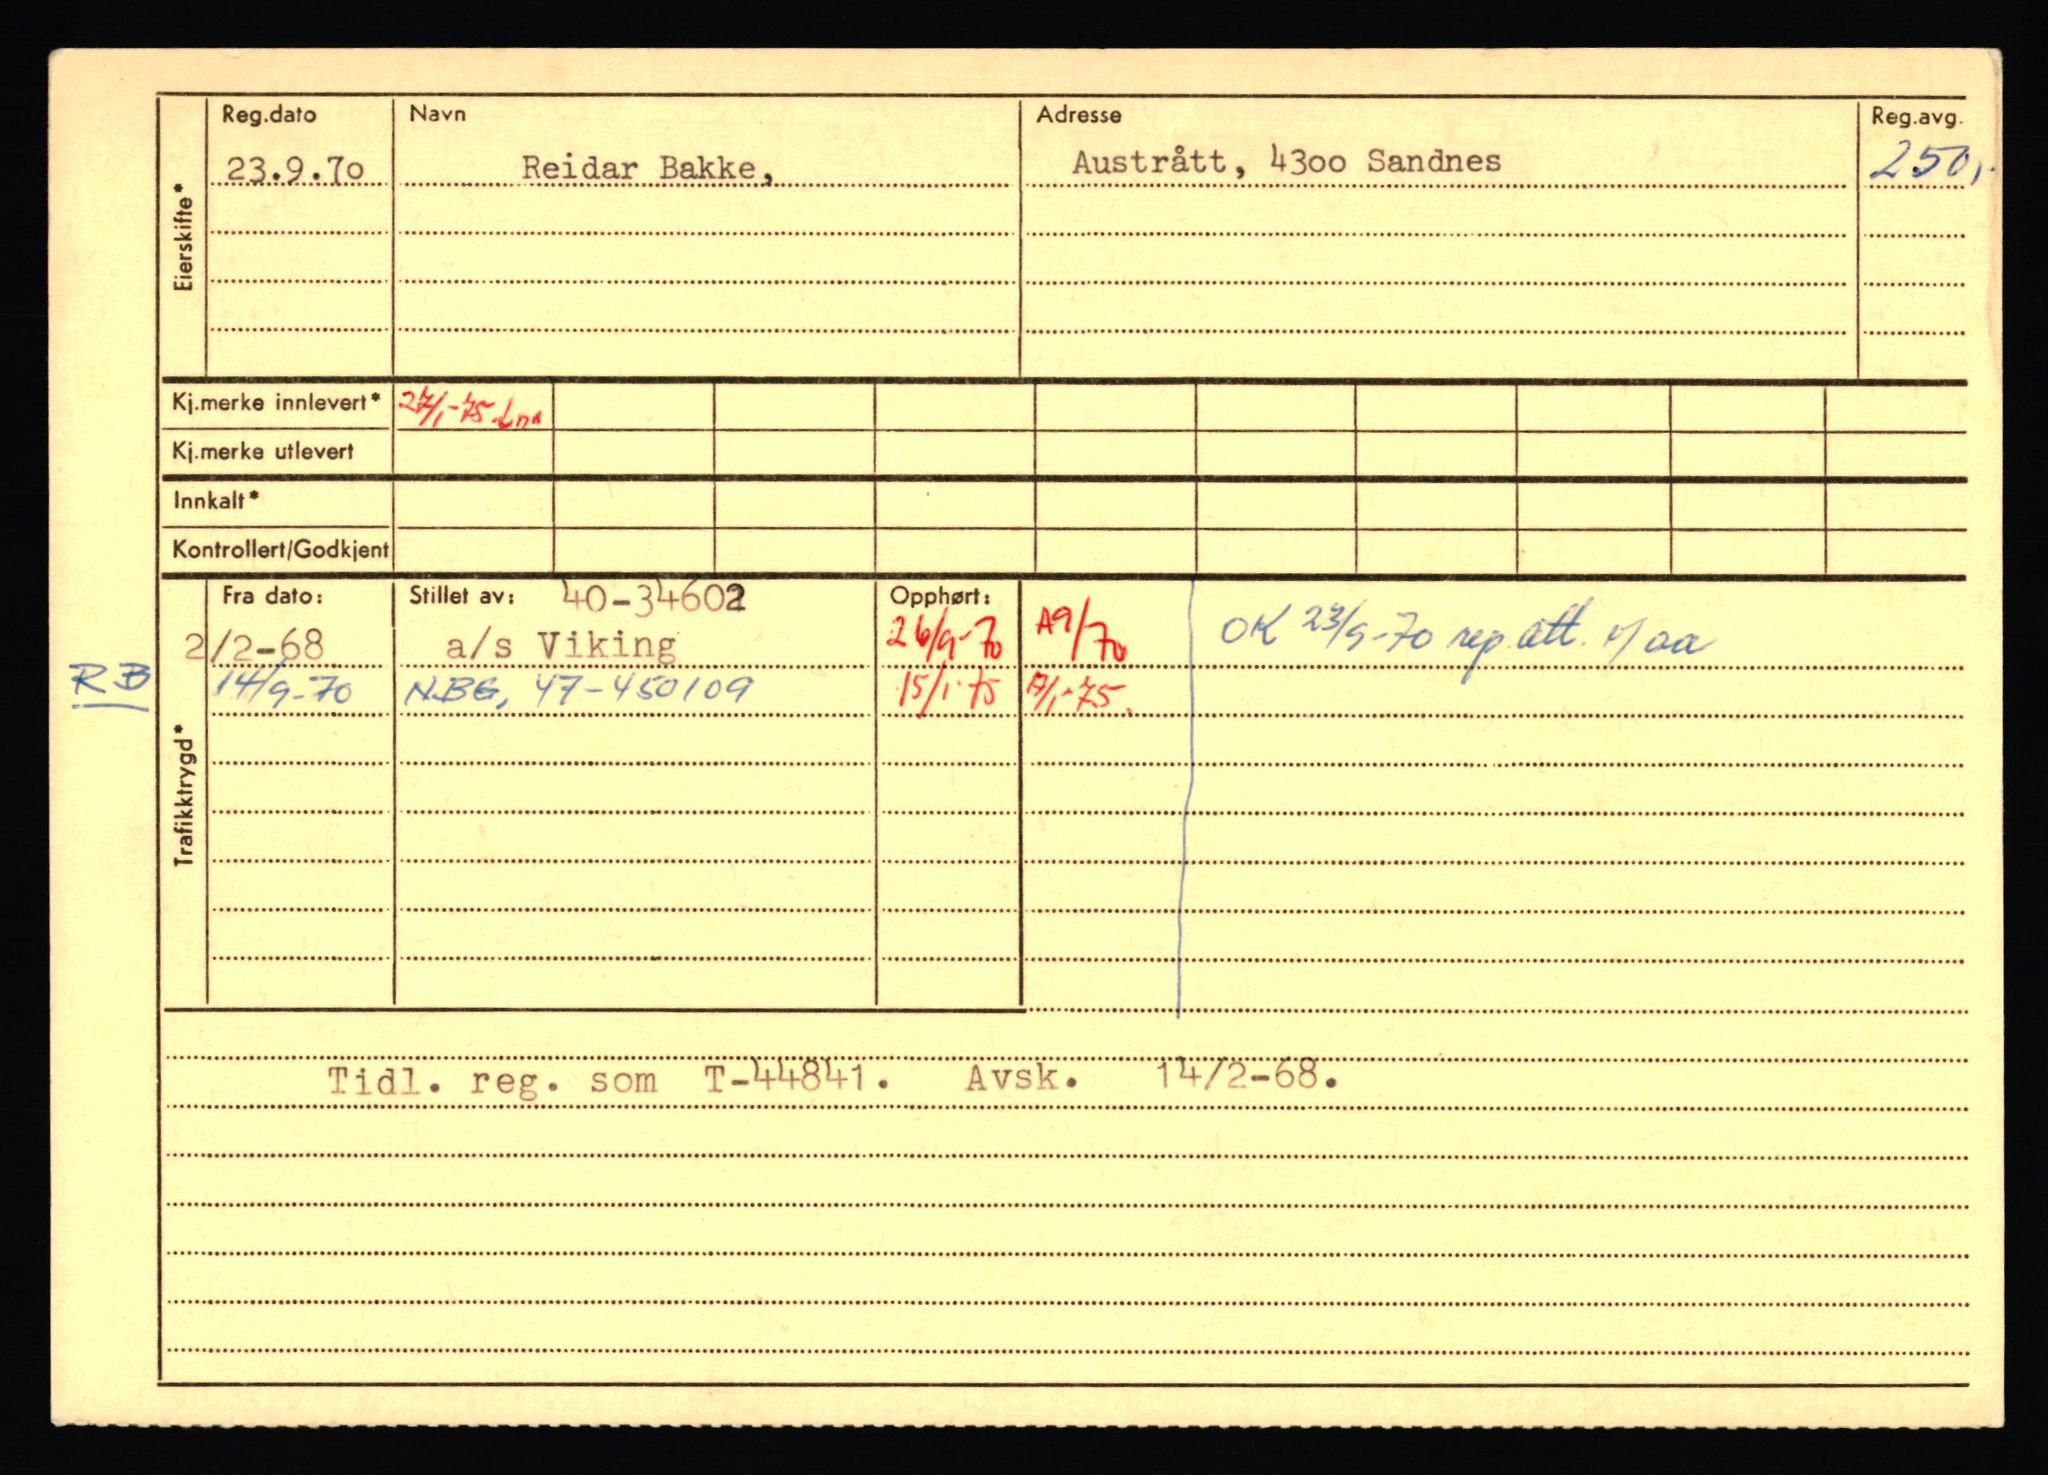 Reg.dato Navn Adresse Reg.avg.
23.9.70 Reidar Bakke, Austrått, 4300 Sandnes 250,-
Eierskifte*
Kj.merke innlevert* 27/1-75
Kj.merke utlevert
Innkalt*
Kontrollert/Godkjent
Fra dato: Stillet av: 40-34602 Opphørt:
2/2-68 a/s Viking 26/9-70 A9/70 OK 23/9-70 rep. att. v/ aa
RB 14/9-70 N.BG, 47-450109 15/1-75 A/1-75.
Trafikktrygd*
Tidl. reg. som T-44841. Avsk. 14/2-68.